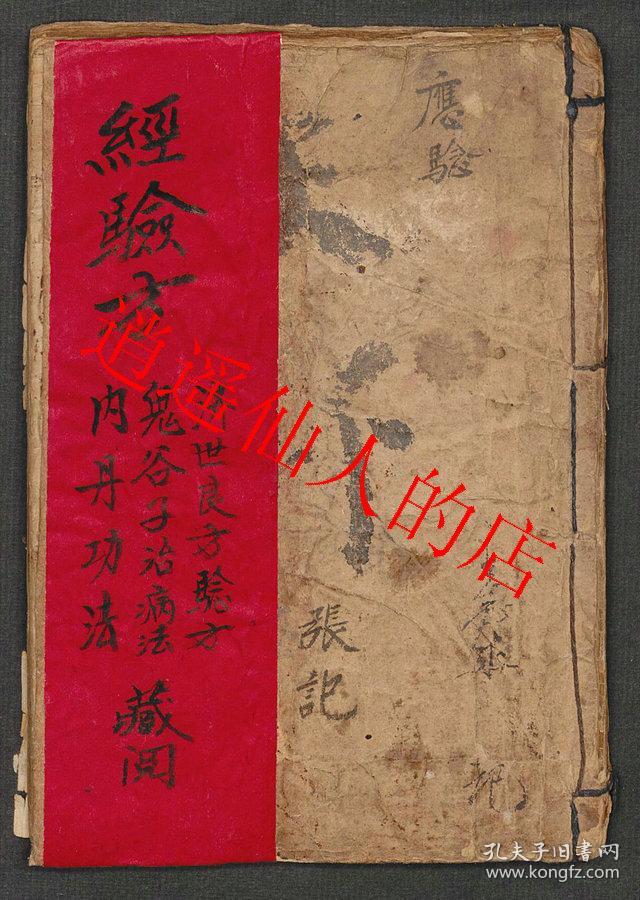 應驗
張記
經驗方
濟世良方驗方
鬼谷子治病法
内丹功法
藏閲
逍遥仙人的店
孔夫子旧书网
www.kongfz.com